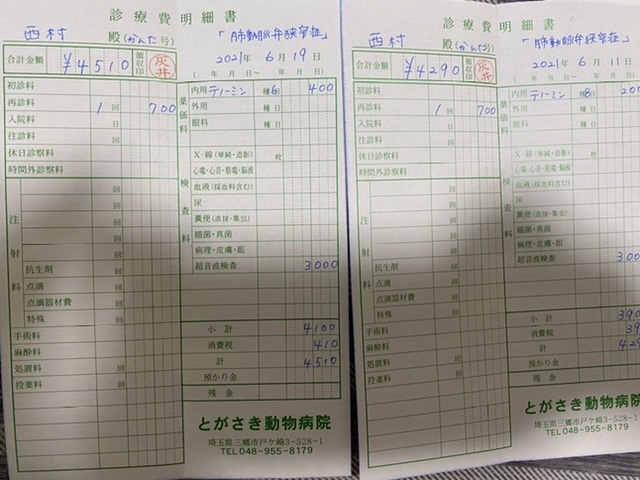 診療費明細書
西村 殿 (かんた号) 「肺動脈弁狭窄症」
合計金額 ¥4510 領収印
2021年 6月 19日
( 年 月 日 ～ 年 月 日)
初診料
再診料 1回 700
入院料 日
往診料
休日診察料
時間外診察料
注射料
回
回
回
回
抗生剤 回
点滴 回
点滴器材費
特殊 回
手術料
麻酔料
処置料 回
投薬料 回
薬価料
内用 種 日 400
外用 種 日
眼科 種 日
検査料
X-線 (単純・造影) 枚
心電・心音・筋電・脳波
血液 (採血料含む)
尿
糞便 (直接・集虫)
細菌・真菌
病理・皮膚・眼
超音波検査 3000
小計 4100
消費税 410
計 4510
預かり金
残金
とがさき動物病院
埼玉県三郷市戸ケ崎3-528-1
TEL048-955-8179
診療費明細書
西村 殿 (かんた号) 「肺動脈弁狭窄症」
合計金額 ¥4290 領収印
2021年 6月 11日
( 年 月 日 ～ 年 月 日)
初診料
再診料 1回 700
入院料 日
往診料
休日診察料
時間外診察料
注射料
回
回
回
回
抗生剤 回
点滴 回
点滴器材費
特殊 回
手術料
麻酔料
処置料 回
投薬料 回
薬価料
内用 種 日 200
外用 種 日
眼科 種 日
検査料
X-線 (単純・造影) 枚
心電・心音・筋電・脳波
血液 (採血料含む)
尿
糞便 (直接・集虫)
細菌・真菌
病理・皮膚・眼
超音波検査 300
小計 390
消費税 39
計 429
預かり金
残金
とがさき動物病院
埼玉県三郷市戸ケ崎3-528-1
TEL048-955-8179